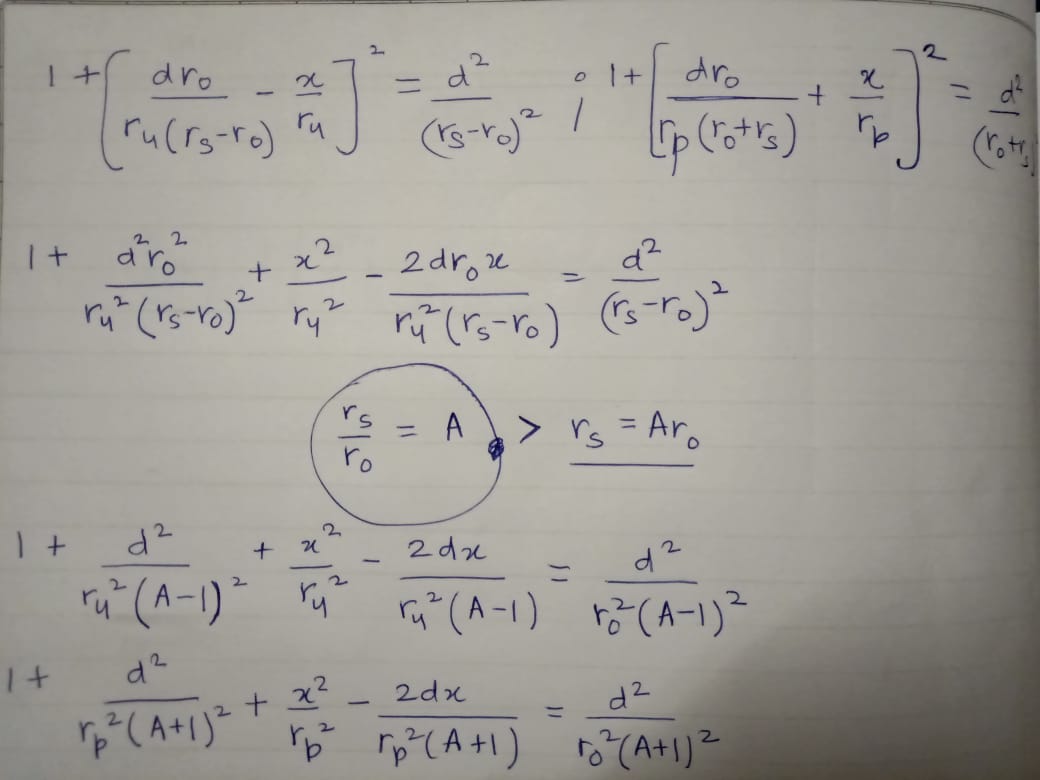 1 + [ dr₀ / r_u(r_s-r₀) - x / r_u ]² = d² / (r_s-r₀)² ; 1 + [ dr₀ / r_p(r₀+r_s) + x / r_p ]² = d² / (r₀+r_s
1 + d²r₀² / r_u²(r_s-r₀)² + x² / r_u² - 2dr₀x / r_u²(r_s-r₀) = d² / (r_s-r₀)²
r_s / r₀ = A > r_s = Ar₀
1 + d² / r_u²(A-1)² + x² / r_u² - 2dx / r_u²(A-1) = d² / r₀²(A-1)²
1 + d² / r_p²(A+1)² + x² / r_p² - 2dx / r_p²(A+1) = d² / r₀²(A+1)²